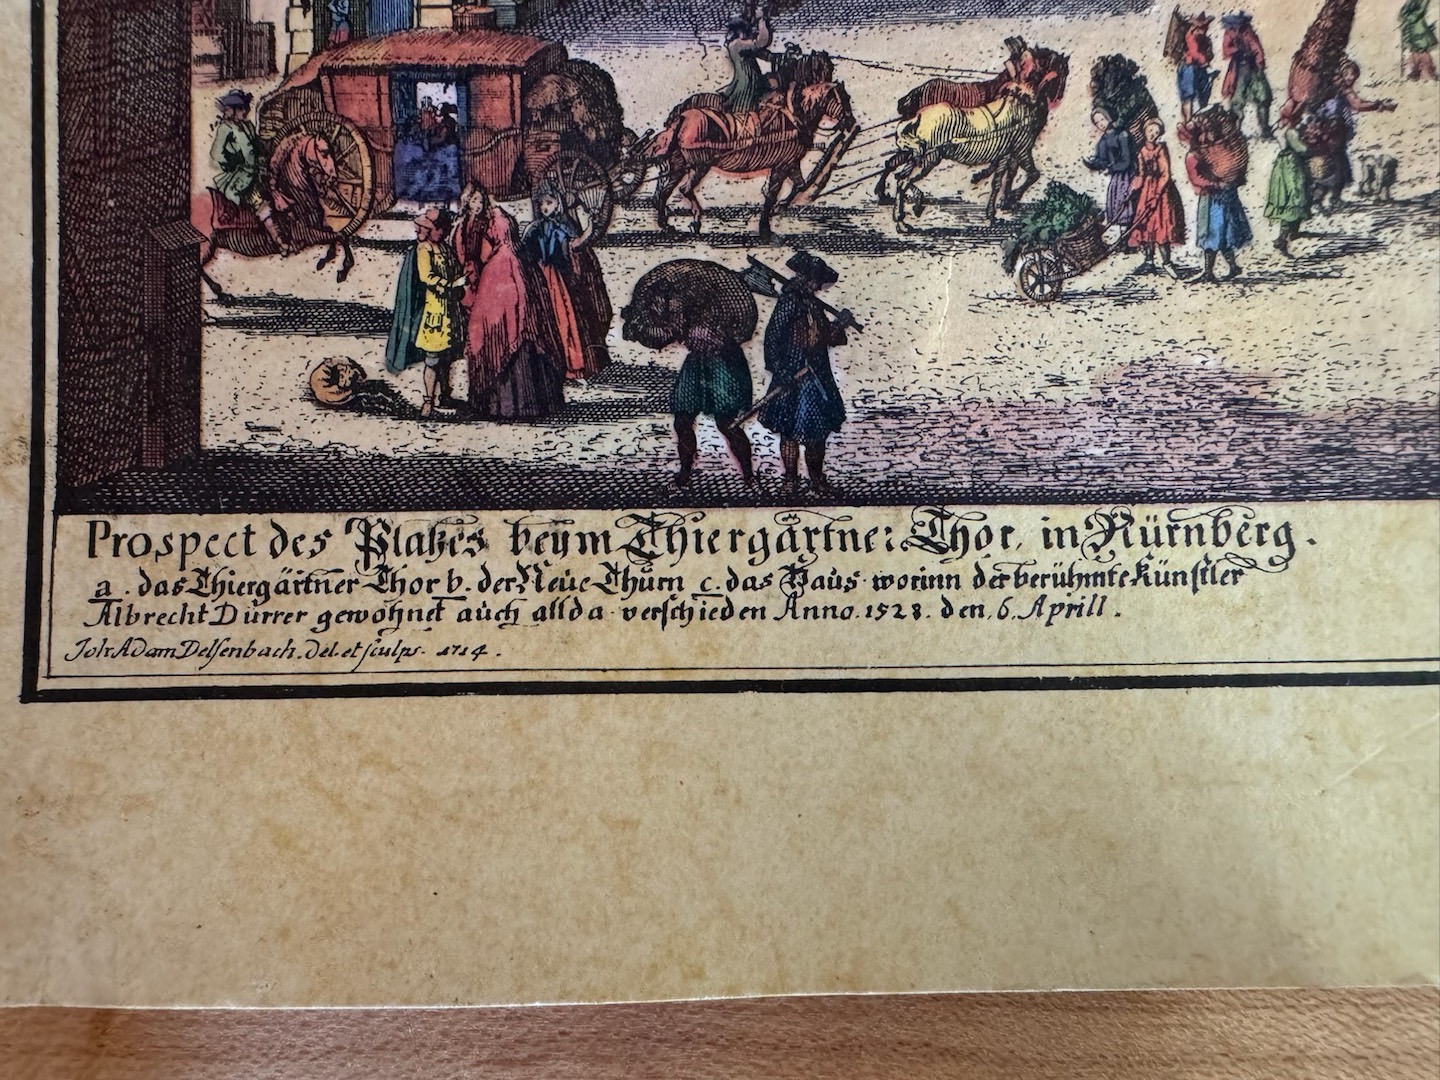 Prospect des Platzes beym Thiergärtner Thor, in Nürnberg.
a. das Thiergärtner Thor b. der Neue Thurn c. das Haus worinn der berühmte Künstler
Albrecht Dürrer gewohnet auch allda verschieden Anno. 1528. den. 6. Aprill.
Joh. Adam Delsenbach. del. et sculps. 1714.